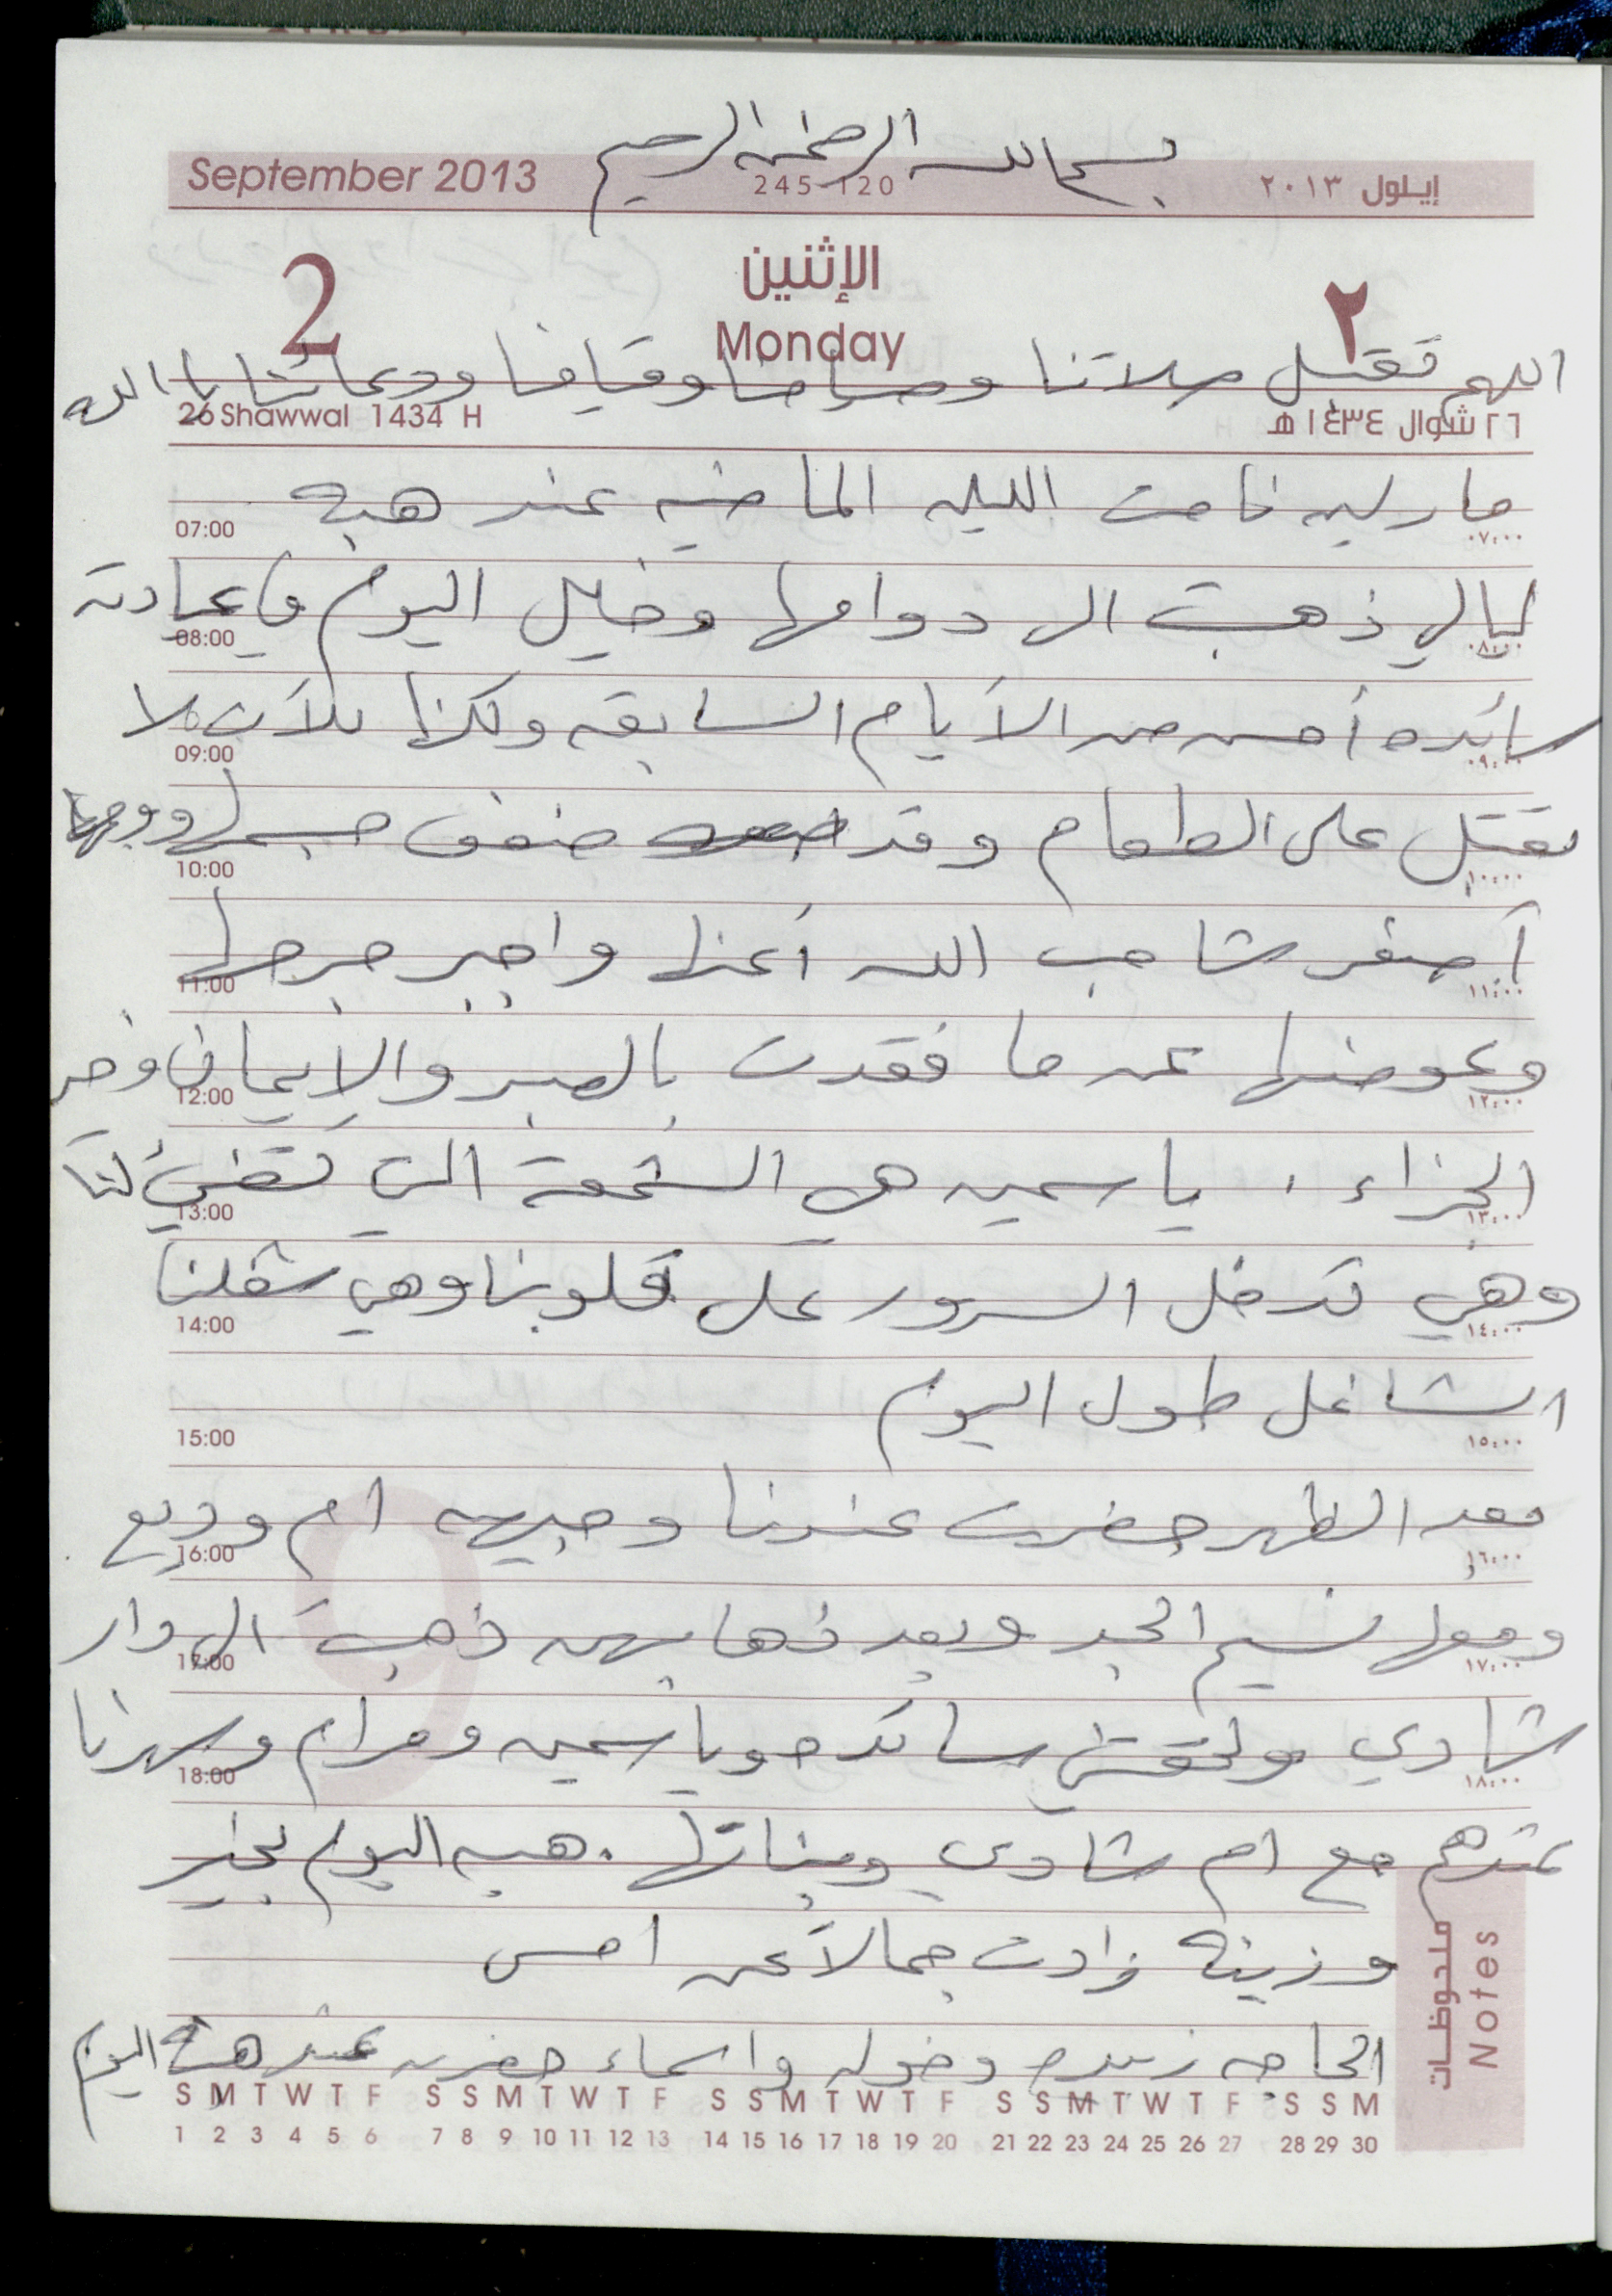 بسم الله الرحمن الرحيم
September 2013 245-120 إيلول ٢٠١٣
2 الإثنين ٢
Monday
اللهم تقبل صلاتنا وصيامنا وقيامنا ودعائنا يا الله
26 Shawwal 1434 H ٢٦ شوال ١٤٣٤ هـ
ماريه نامت الليله الماضيه عند هبه
07:00 ٠٧:٠٠
ليالي ذهبت الى دوامها وخليل اليوم في عيادته
08:00 ٠٨:٠٠
سائده أحسن من الأيام السابقه ولكنها للآن لا
09:00 ٠٩:٠٠
تقبل على الطعام وقد ضعف جسمها ووجهها
10:00 ١٠:٠٠
أصفر شاحب الله أعنها واجبر جرحها
11:00 ١١:٠٠
وعوضها عن ما فقدت بالصبر والإيمان وخير
12:00 ١٢:٠٠
الجزاء . ياسمين هي الشمعة التي تضيء لنا
13:00 ١٣:٠٠
وهي تدخل السرور على قلوبنا وهي شغلنا
14:00 ١٤:٠٠
الشاغل طول اليوم
15:00 ١٥:٠٠
بعد الظهر حضرت عندنا وجيهه ام وديع
16:00 ١٦:٠٠
ومعها نسيم الجبر وبعد ذهابهن ذهبت الى دار
17:00 ١٧:٠٠
شادي ولحقتني سائده وياسمين ومرام وسهرنا
18:00 ١٨:٠٠
عندهم مع ام شادي وبناتها . هبه اليوم بخير
وزينه زادت جمالاً عن امس
ملحوظات Notes
الحاجه زبيده وخوله واسماء حضرن عند هبه اليوم
S M T W T F S S M T W T F S S M T W T F S S M T W T F S S M
1 2 3 4 5 6 7 8 9 10 11 12 13 14 15 16 17 18 19 20 21 22 23 24 25 26 27 28 29 30